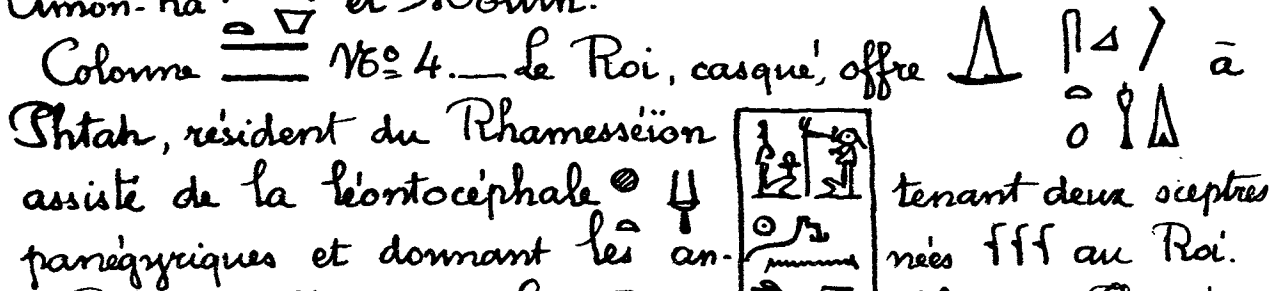 Amon-Ra et Mouth.
Colonne N° 4. — Le Roi, casqué, offre à
Phtah, résident du Rhamesséïon
assisté de la léontocéphale tenant deux sceptres
panégyriques et donnant les an- nées au Roi.